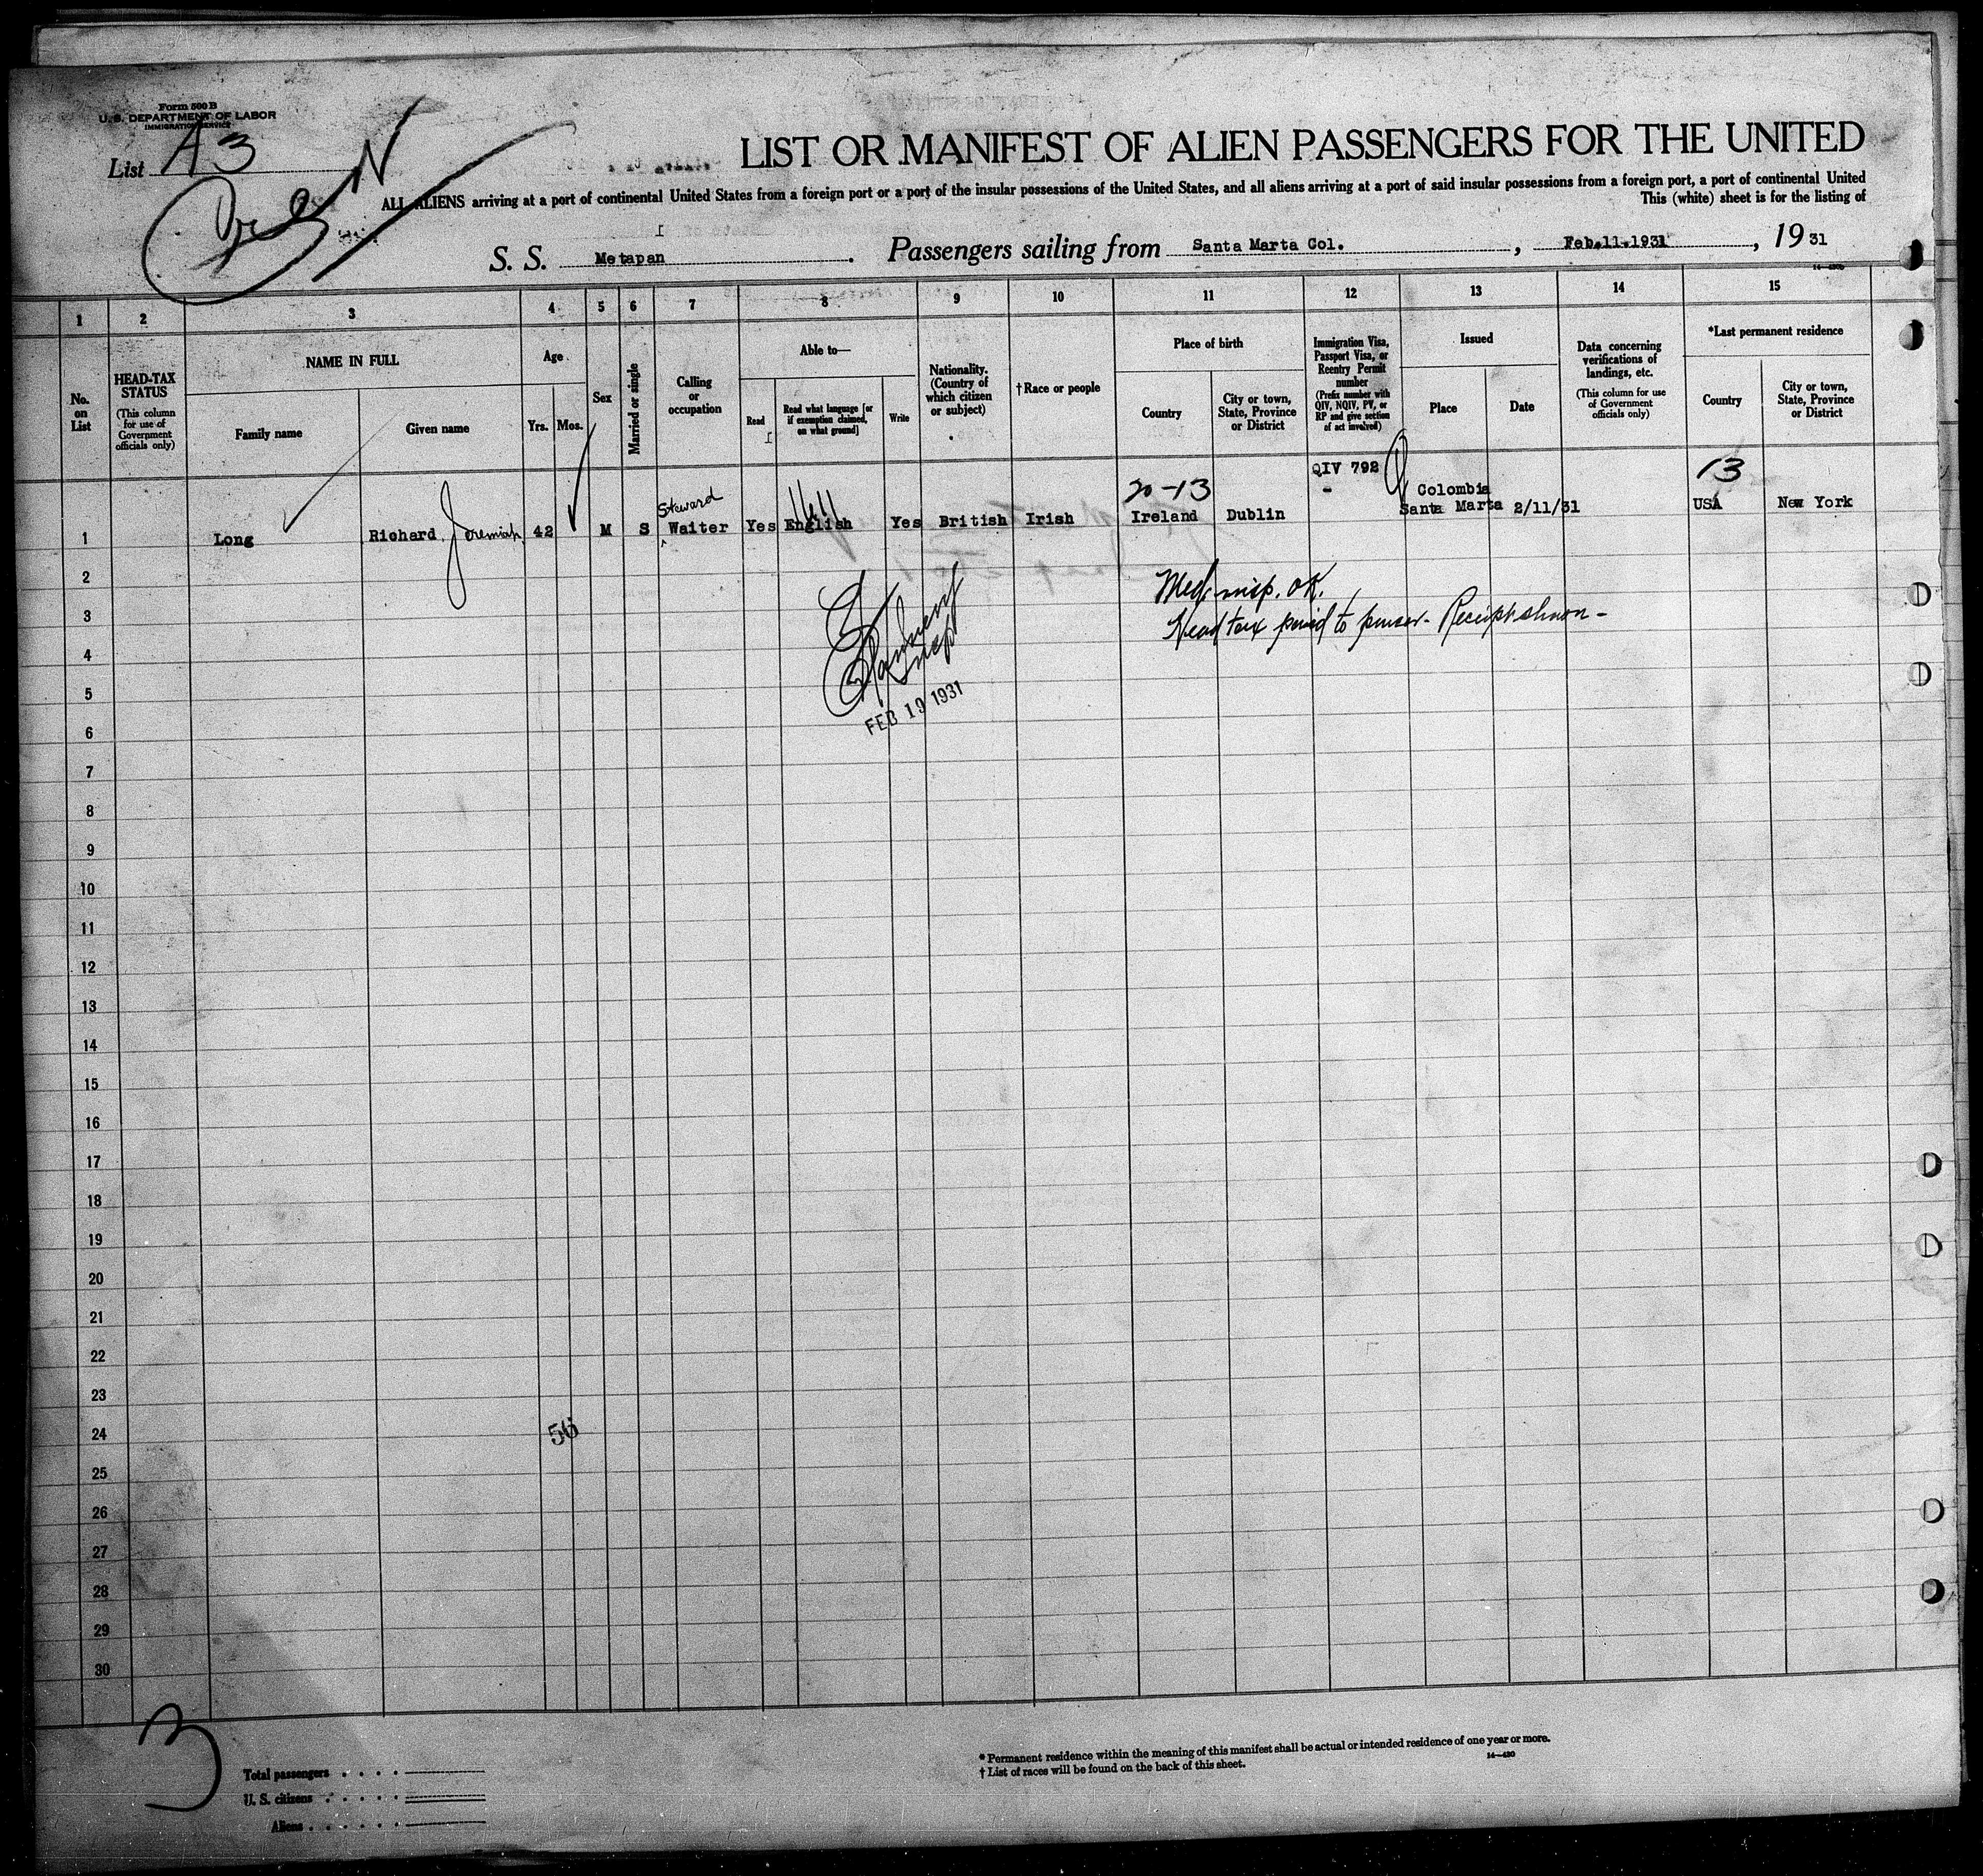 Form 500 B
U. S. DEPARTMENT OF LABOR
IMMIGRATION SERVICE
List A3
LIST OR MANIFEST OF ALIEN PASSENGERS FOR THE UNITED
ALL ALIENS arriving at a port of continental United States from a foreign port or a port of the insular possessions of the United States, and all aliens arriving at a port of said insular possessions from a foreign port, a port of continental United
This (white) sheet is for the listing of
S. S. Metapan. Passengers sailing from Santa Marta Col., Feb.11.1931, 19 31
1 2 3 4 5 6 7 8 9 10 11 12 13 14 15
No. on List
HEAD-TAX STATUS
(This column for use of Government officials only)
NAME IN FULL
Family name
Given name
Age
Yrs.
Mos.
Sex
Married or single
Calling or occupation
Able to—
Read
Read what language [or if exemption claimed, on what ground]
Write
Nationality. (Country of which citizen or subject)
†Race or people
Place of birth
Country
City or town, State, Province or District
Immigration Visa, Passport Visa, or Reentry Permit number
(Prefix number with QIV, NQIV, PV, or RP and give section of act involved)
Issued
Place
Date
Data concerning verifications of landings, etc.
(This column for use of Government officials only)
*Last permanent residence
Country
City or town, State, Province or District
QIV 792
13
20-13
Steward
Colombia
1 Long Richard Jeremiah 42 M S Waiter Yes English Yes British Irish Ireland Dublin Santa Marta 2/11/31 USA New York
2
Med. insp. OK.
3
Head tax paid to purser - Receipt shown -
4
5
FEB 19 1931
6
7
8
9
10
11
12
13
14
15
16
17
18
19
20
21
22
23
24
56
25
26
27
28
29
30
3
Total passengers
U. S. citizens
Aliens
* Permanent residence within the meaning of this manifest shall be actual or intended residence of one year or more.
† List of races will be found on the back of this sheet.
14—430